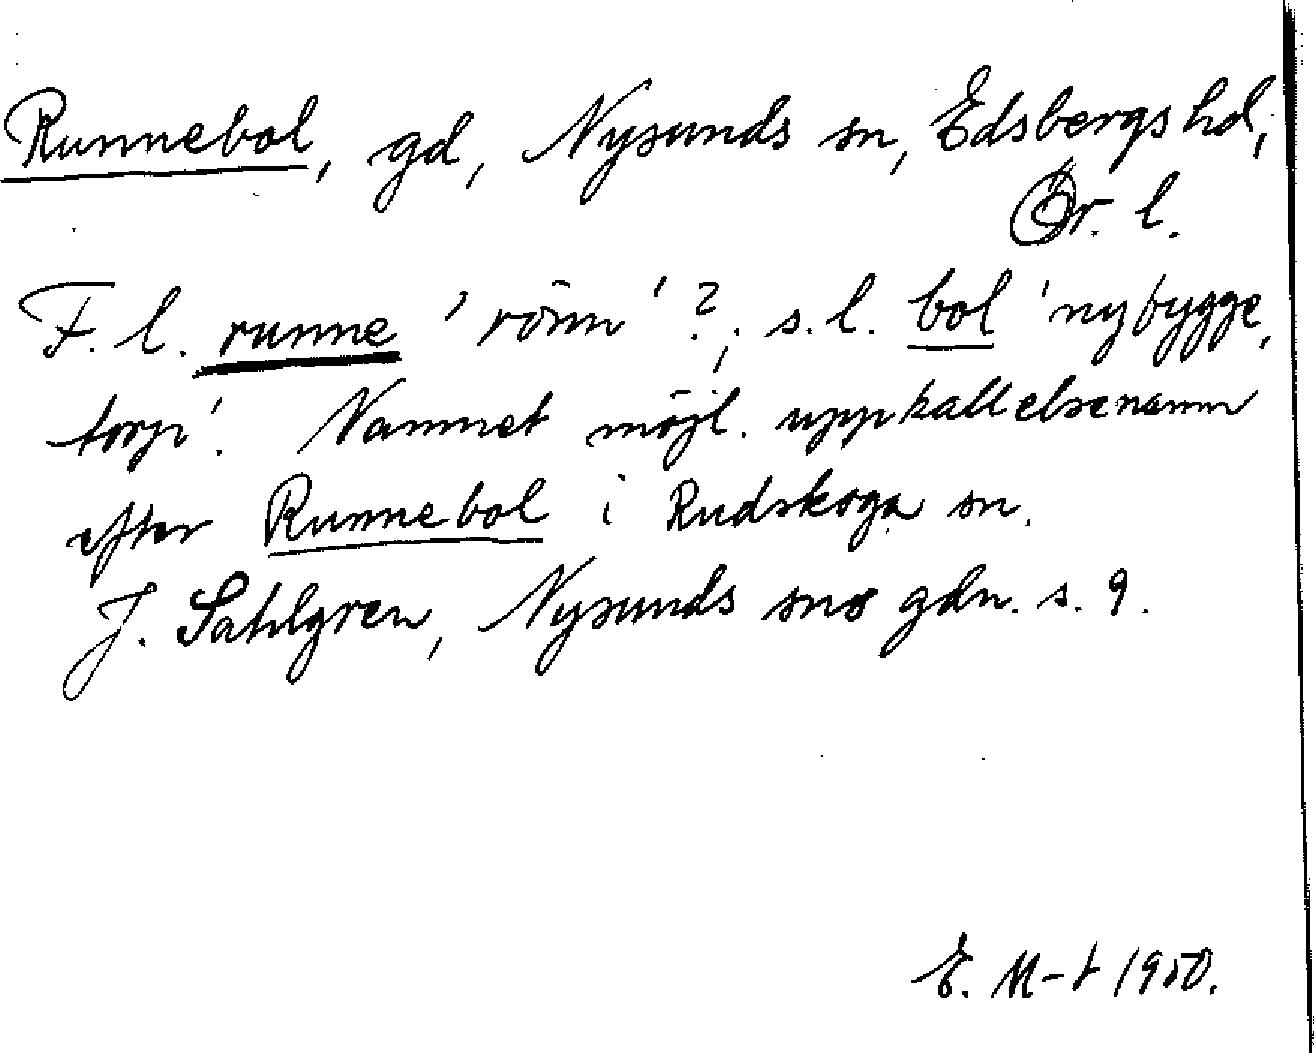 Runnebol, gd, Nysunds sn, Edsbergs hd,
Ör. l.
F. l. runne 'rönn'?; s. l. bol 'nybygge,
torp'. Namnet möjl. uppkallelsenamn
efter Runnebol i Rudskoga sn.
J. Sahlgren, Nysunds sns gdn. s. 9.
E. M-t 1950.